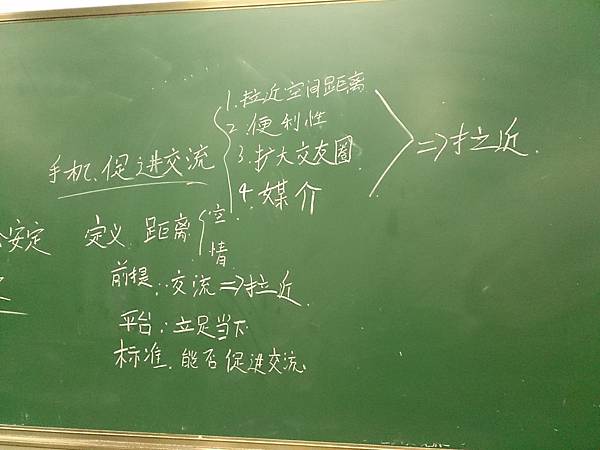 1.拉近空间距离
2.便利性
手机、促进交流
3.扩大交友圈
=>拉近.
4.媒介
安定 定义 距离 空
情
前提:交流=>拉近
平台:立足当下.
标准.能否促进交流.